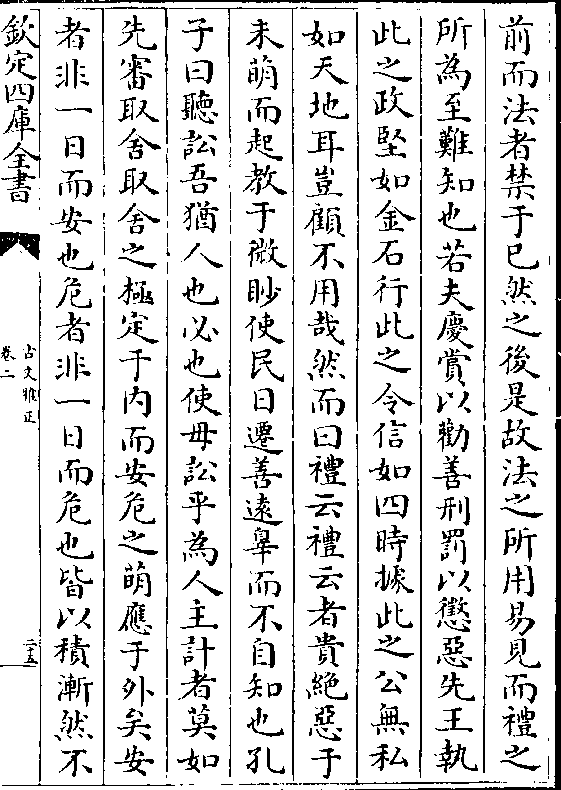 前而法者禁于已然之後是故法之所用易見而禮之
所為至難知也若夫慶賞以勸善刑罰以懲惡先王執
此之政堅如金石行此之令信如四時據此之公無私
如天地耳豈顧不用哉然而曰禮云禮云者貴絶惡于
未萌而起教于微眇使民日遷善遠辠而不自知也孔
子曰聽訟吾猶人也必也使毋訟乎為人主計者莫如
先審取舍取舍之極定于内而安危之萌應于外矣安
者非一日而安也危者非一日而危也皆以積漸然不
欽定四庫全書
古文雅正
卷二
二十五